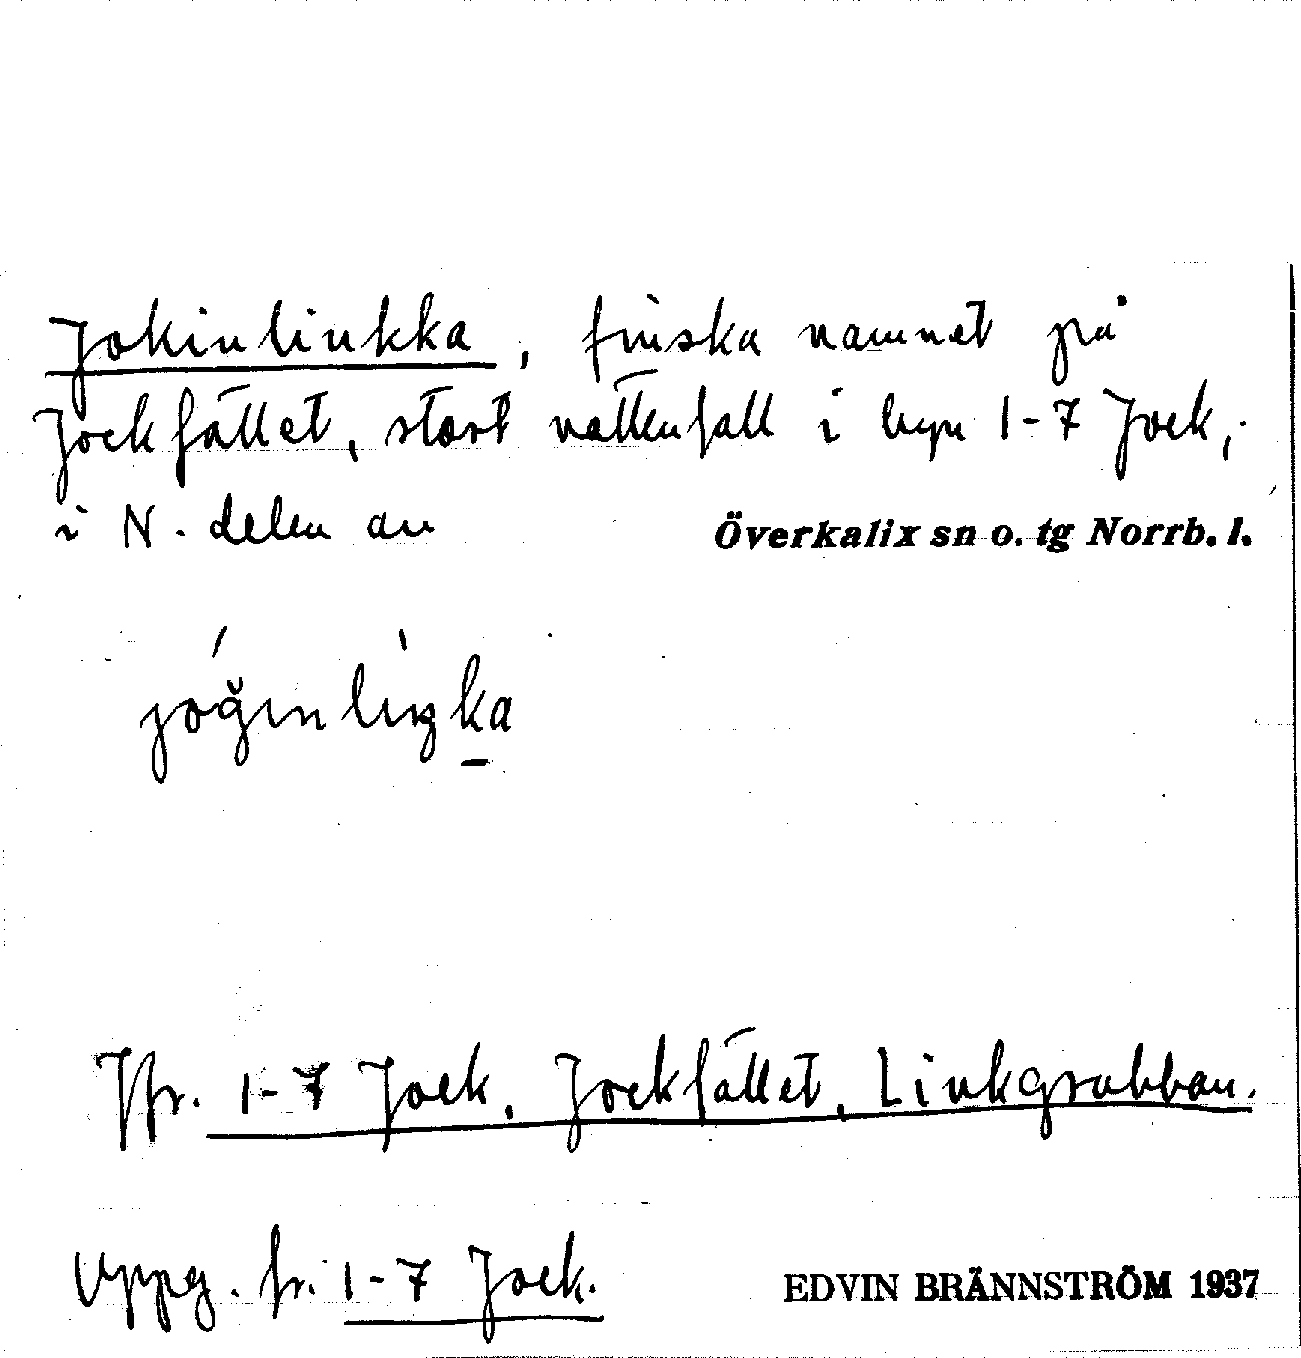 Jokinlinkka, finska namnet på
Jockfallet, stort vattenfall i byn 1-7 Jock,
i N. delen av Överkalix sn o. tg Norrb. l.
Jfr. 1-7 Jock, Jockfallet, Linkgrubban.
Uppg. fr. 1-7 Jock. EDVIN BRÄNNSTRÖM 1937